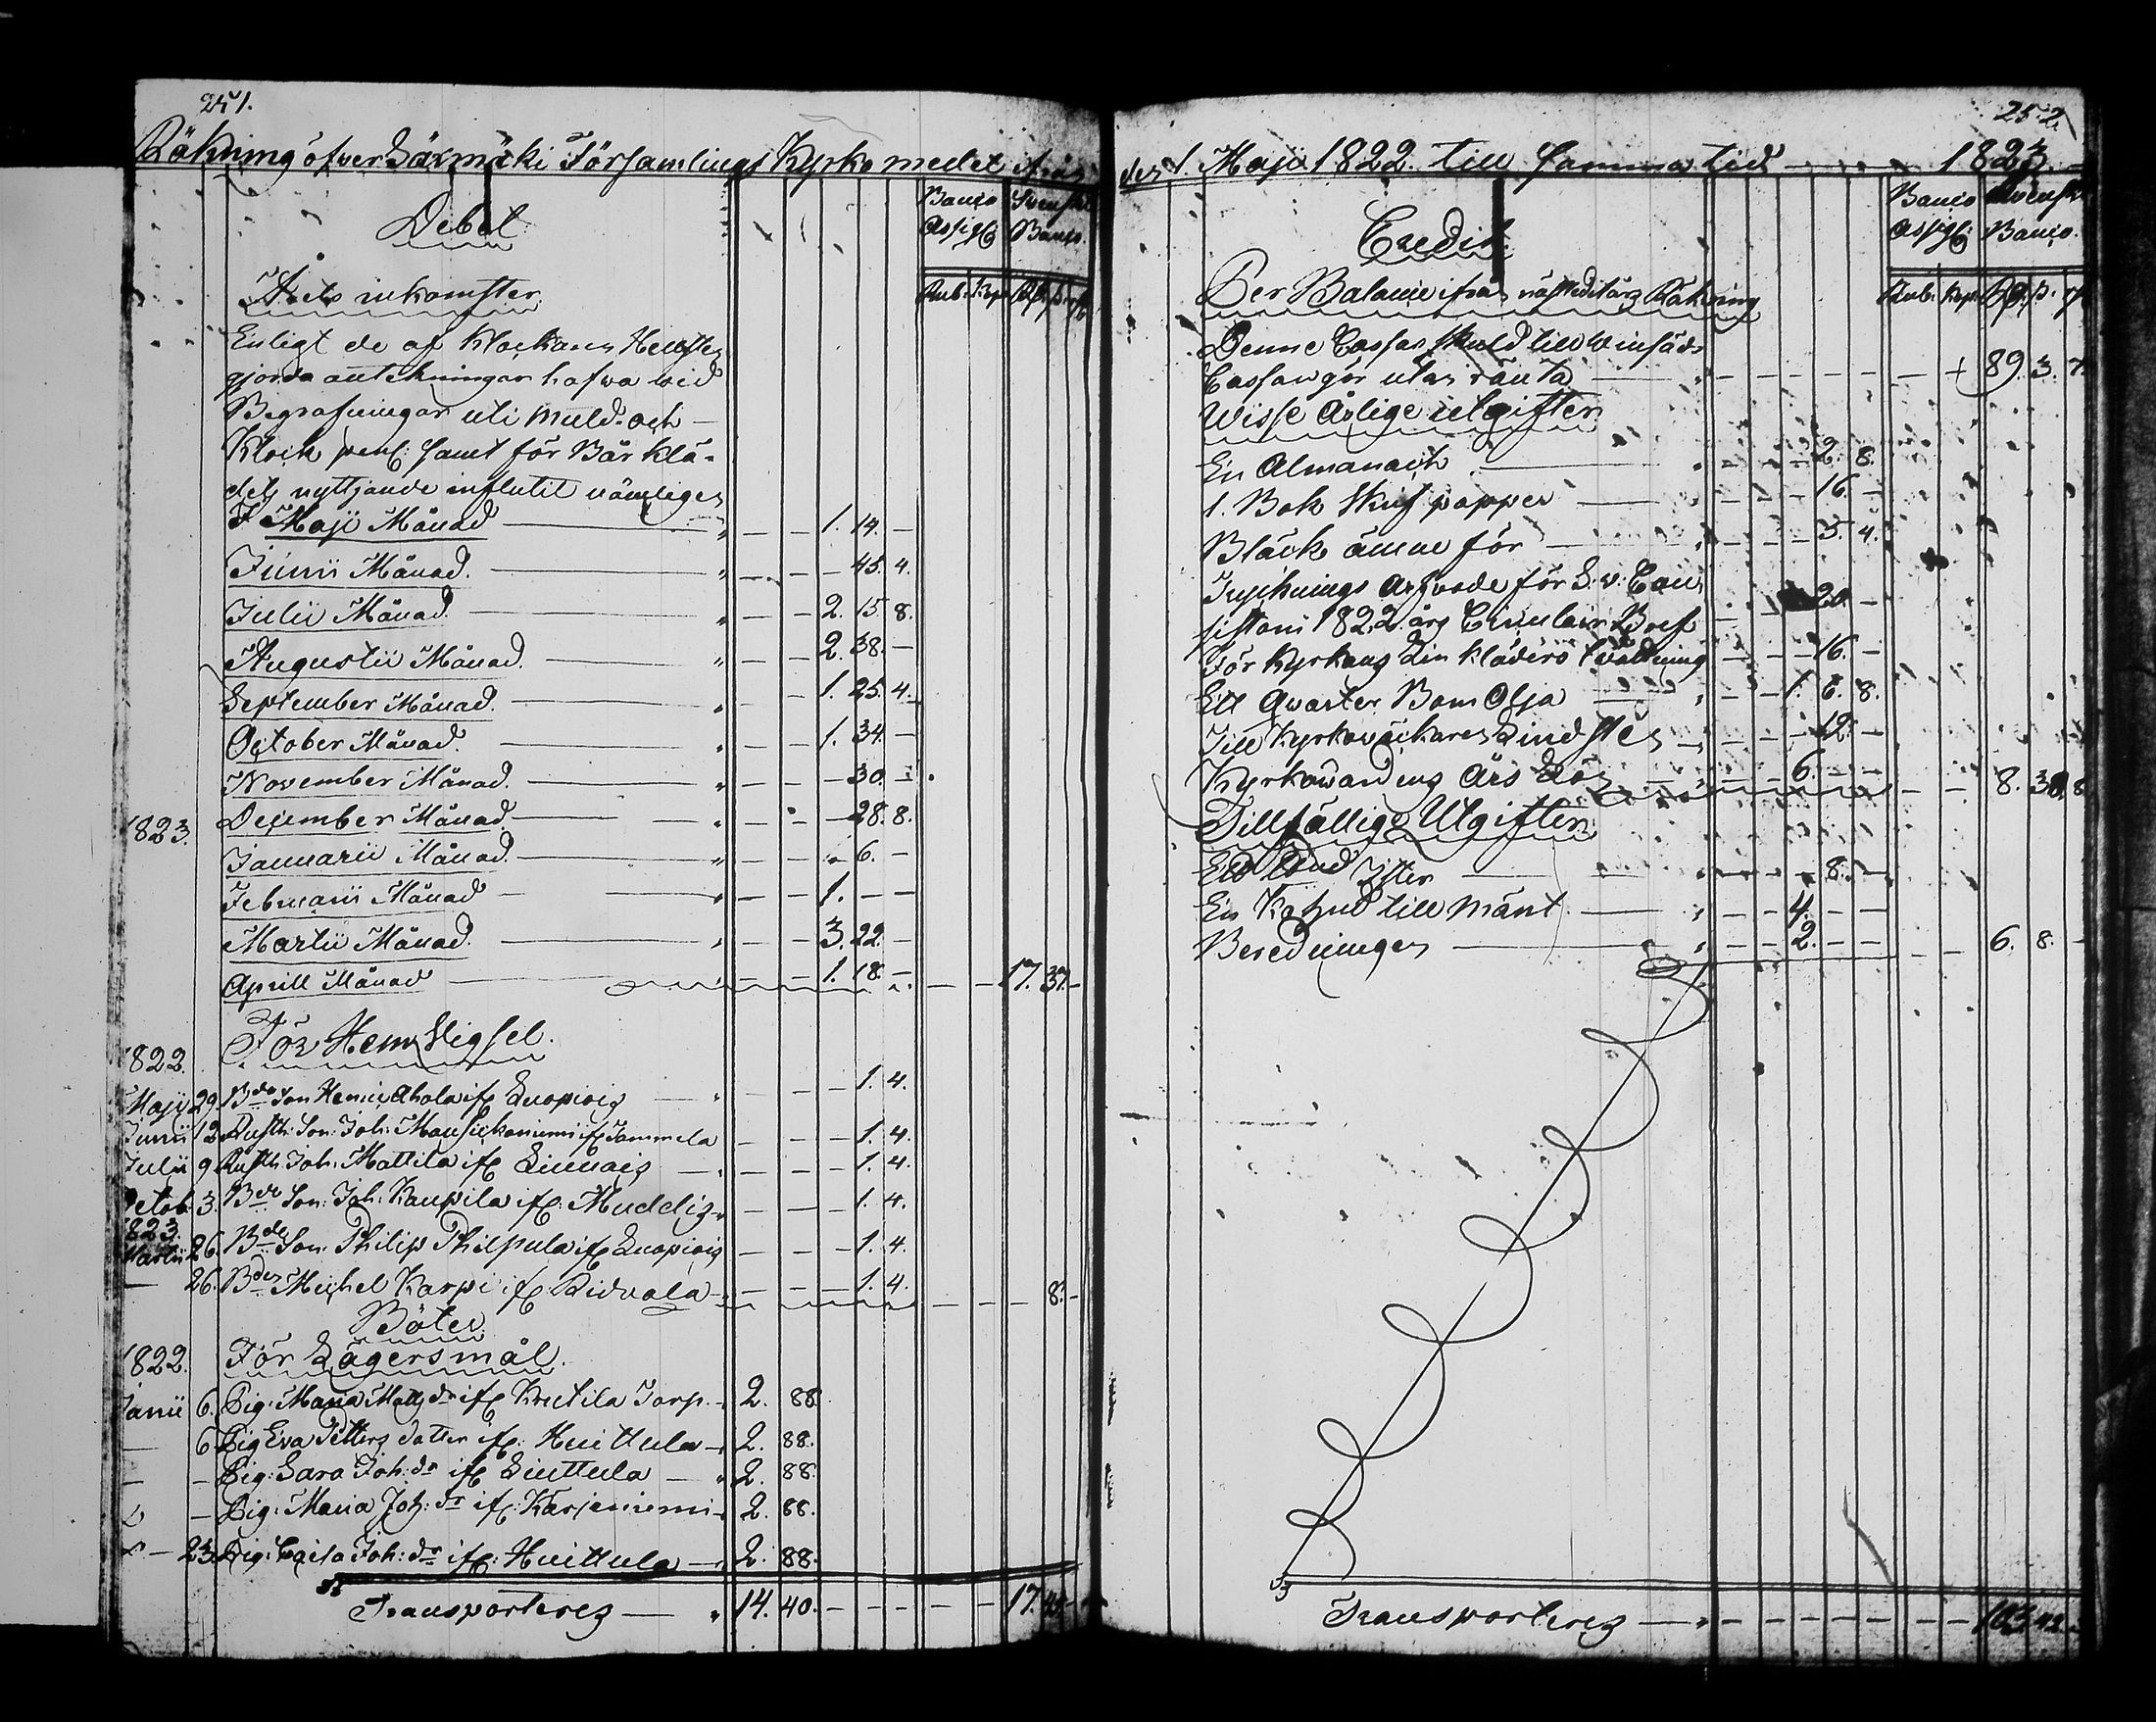 251.
Räkning öfver Säxmäki Församlings Kyrko medel ifrån
Debet
Banco Assigt:
Svenskt Banco.
Rub: Kop: Rd. ß. rst
Årets inkomster.
Enligt de af Klockaren Hellsten
gjorda anteckningar hafva wid
Begrafningar uti Muld- och
Klock peng: samt för Bår klä-
dets nyttjande influtit nämligen
I Maji Månad — " — — 1. 14. —
Junii Månad. — " — — — 45. 4.
Julii Månad. — " — — 2. 15. 8.
Augustii Månad. — " — — 2. 38. —
September Månad. — " — 1. 25. 4.
October Månad. — " — — 1. 34. —
November Månad. — " — — — 30. —
December Månad. — " — — — 28. 8.
1823. Januarii Månad. — " — — — 6. —
Februarii Månad — " — — 1. — —
Martii Månad. — " — — 3. 22. —
Aprill Månad — " — — 1. 18. — — — 17. 37. —
För Hem Vigsel.
1822.
Maji 29. Bde Son Henric Ahola if: Luopiois " — — — 1. 4.
Junii 12. Rusth: Son: Joh: if: Tammela — — — 1. 4.
Julii 9. Rusth: Joh: Mattila if: Linnais — — — 1. 4.
Octob: 3. Bde Son: Joh: Kaupila if: Huddis — — — 1. 4.
1823.
Martii 26. Bde Son: Philip Philpula if: Luopiois — — — 1. 4.
— 26. Bden Michel Karpi if: Ridvala — — — 1. 4. — — — 8. —
Böter
1822. För Lägersmål.
Junii 6. Pig: Maria Matts dr if: Krutila Torp. 2. 88.
— 6. Pig Eva Petters dotter if: Huittula — 2. 88.
— — Pig: Sara Joh: dr if: Liuttula — " 2. 88.
— Pig: Maria Joh: dr if: Karjeniemi 2. 88.
— 23. Pig: Caisa Joh: dr if: Huittula — 2. 88.
Transporteras — " 14. 40. — — — — — 17. 45. —
252.
den 1. Maji 1822. till samma tid — 1823.
Credit.
Banco Assigt:
Svenskt Banco.
Rub: Kop: Rd. ß. rst
Per Balance ifrån nästledit års Räkning
Denne Cassas skuld till Winsäds
Cassan gör utan ränta — " — — — — — — 89. 3. 7.
Wisse Årlige utgifter
En Almanach — " — — — 2. 8.
1. Bok Skrif papper — " — — — 16. —
Bläck ämne för — " — — — 5. 4.
Tryknings Arfvode för S. v. Con
sistorii 1822. års Circulair Bref — — — 20. —
För Kyrkans Linkläders tvättning — — — 16. —
Ett Qvarter Bom Olja — " — — 1. 6. 8.
Till Kyrkoväckaren Lindsten — — — 12. —
Kyrkowärdens Års Lön — — — 6. — — — — 8. 38. 8.
Tillfällige Utgifter.
Ett Pund Ister — " — — — 8. —
En Kohud till Mänt — " — — 4. — —
Beredningen — " — — 2. — — — — 6. 8. —
Transporteras — " — — — — — — —